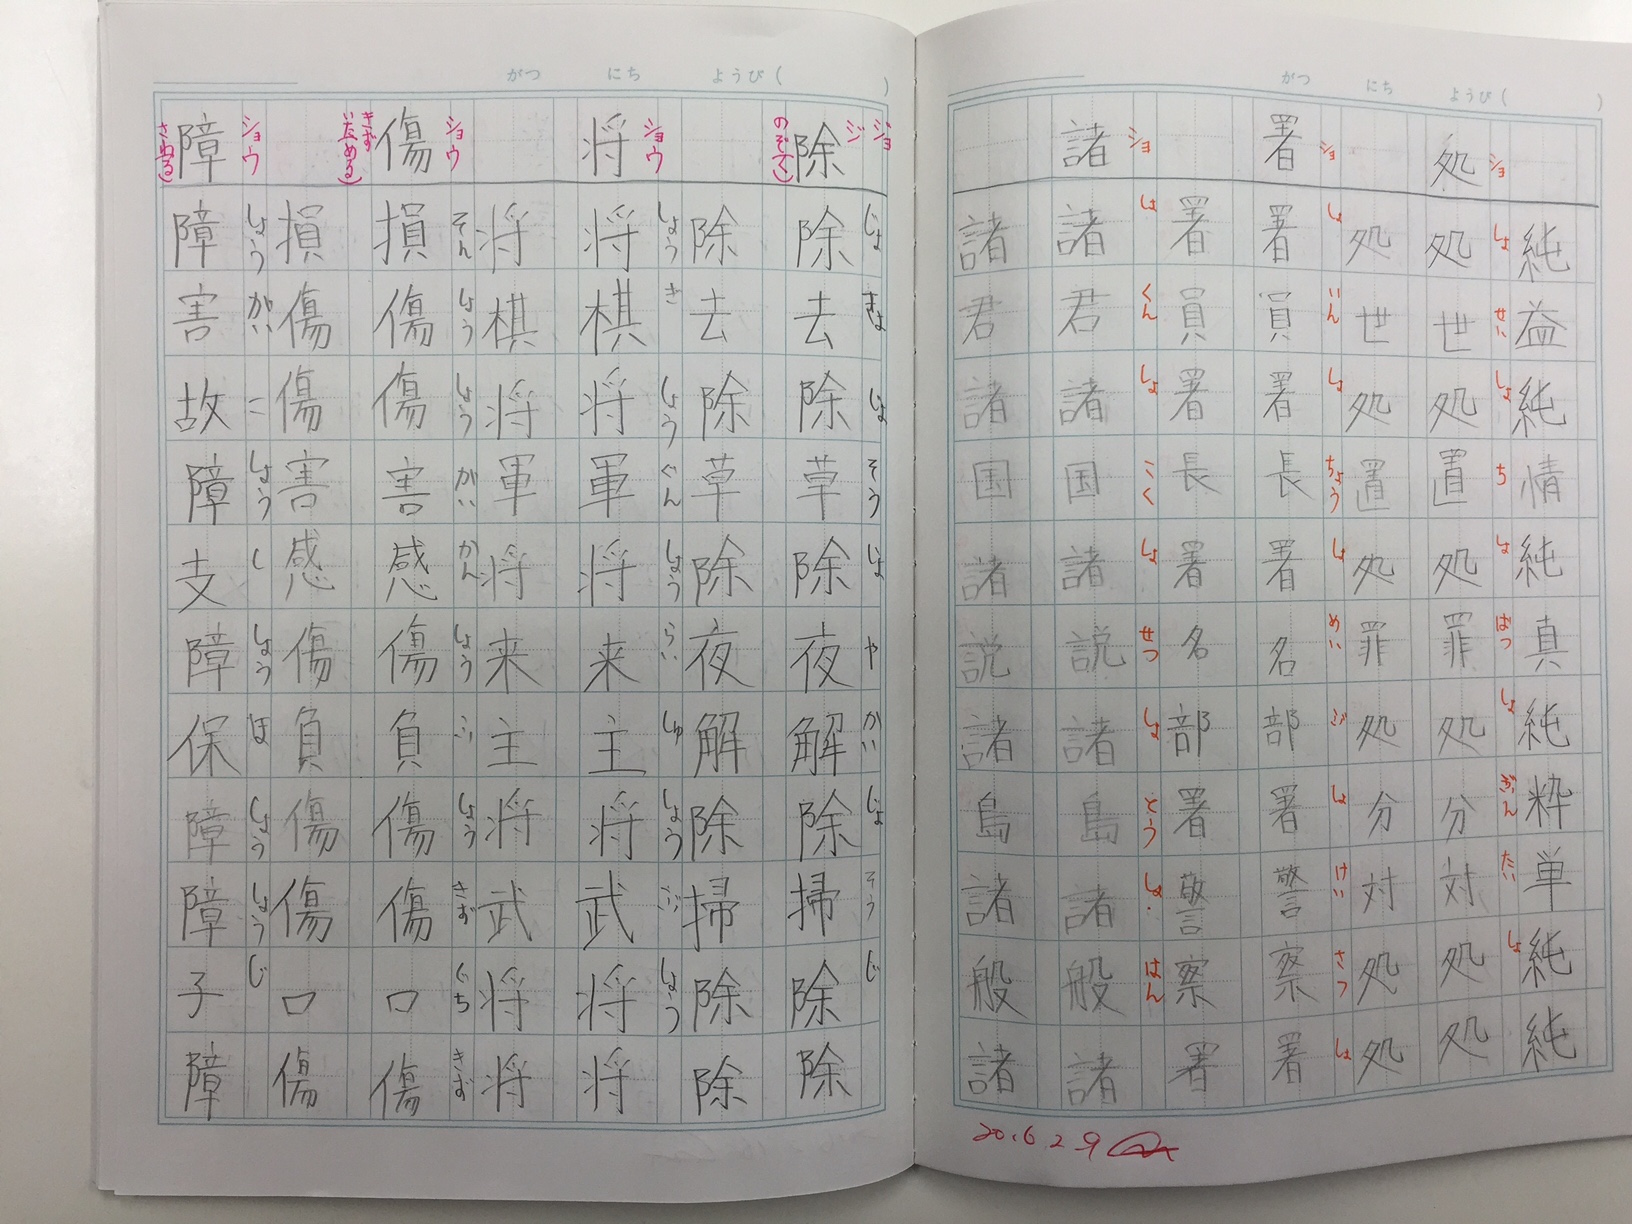 がつ にち ようび( )
純益純情純真純粋単純純
処
ショ
処世処置処罪処分対処処
しょせいしょちしょばつしょぶんたいしょ
処世処置処罪処分対処処
署
ショ
署員署長署名部署警察署
しょいんしょちょうしょめいぶしょけいさつしょ
署員署長署名部署警察署
諸
ショ
諸君諸国諸説諸島諸般諸
しょくんしょこくしょせつしょとうしょはん
諸君諸国諸説諸島諸般諸
20.6 2 9
がつ にち ようび( )
除
ジョ
ジ
のぞ(く)
除去除草除夜解除掃除除
じょきょじょそうじょやかいじょそうじ
除去除草除夜解除掃除除
将
ショウ
将棋将軍将来主将武将将
しょうきしょうぐんしょうらいしゅしょうぶしょう
将棋将軍将来主将武将将
傷
ショウ
きず
いた(める)
損傷傷害感傷負傷傷口傷
そんしょうしょうがいかんしょうふしょうきずぐちきず
損傷傷害感傷負傷傷口傷
障
ショウ
さわ(る)
障害故障支障保障障子障
しょうがいこしょうししょうほしょうしょうじ